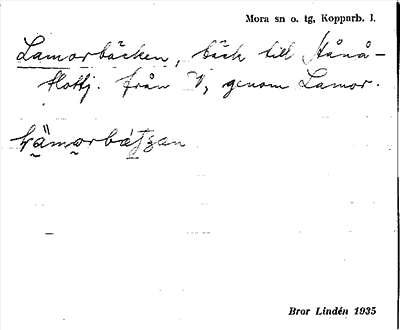 Mora sn o. tg, Kopparb. l.
Lamorbäcken, bäck till Stånå-
klottj. från V, genom Lamor.
Bror Lindén 1935